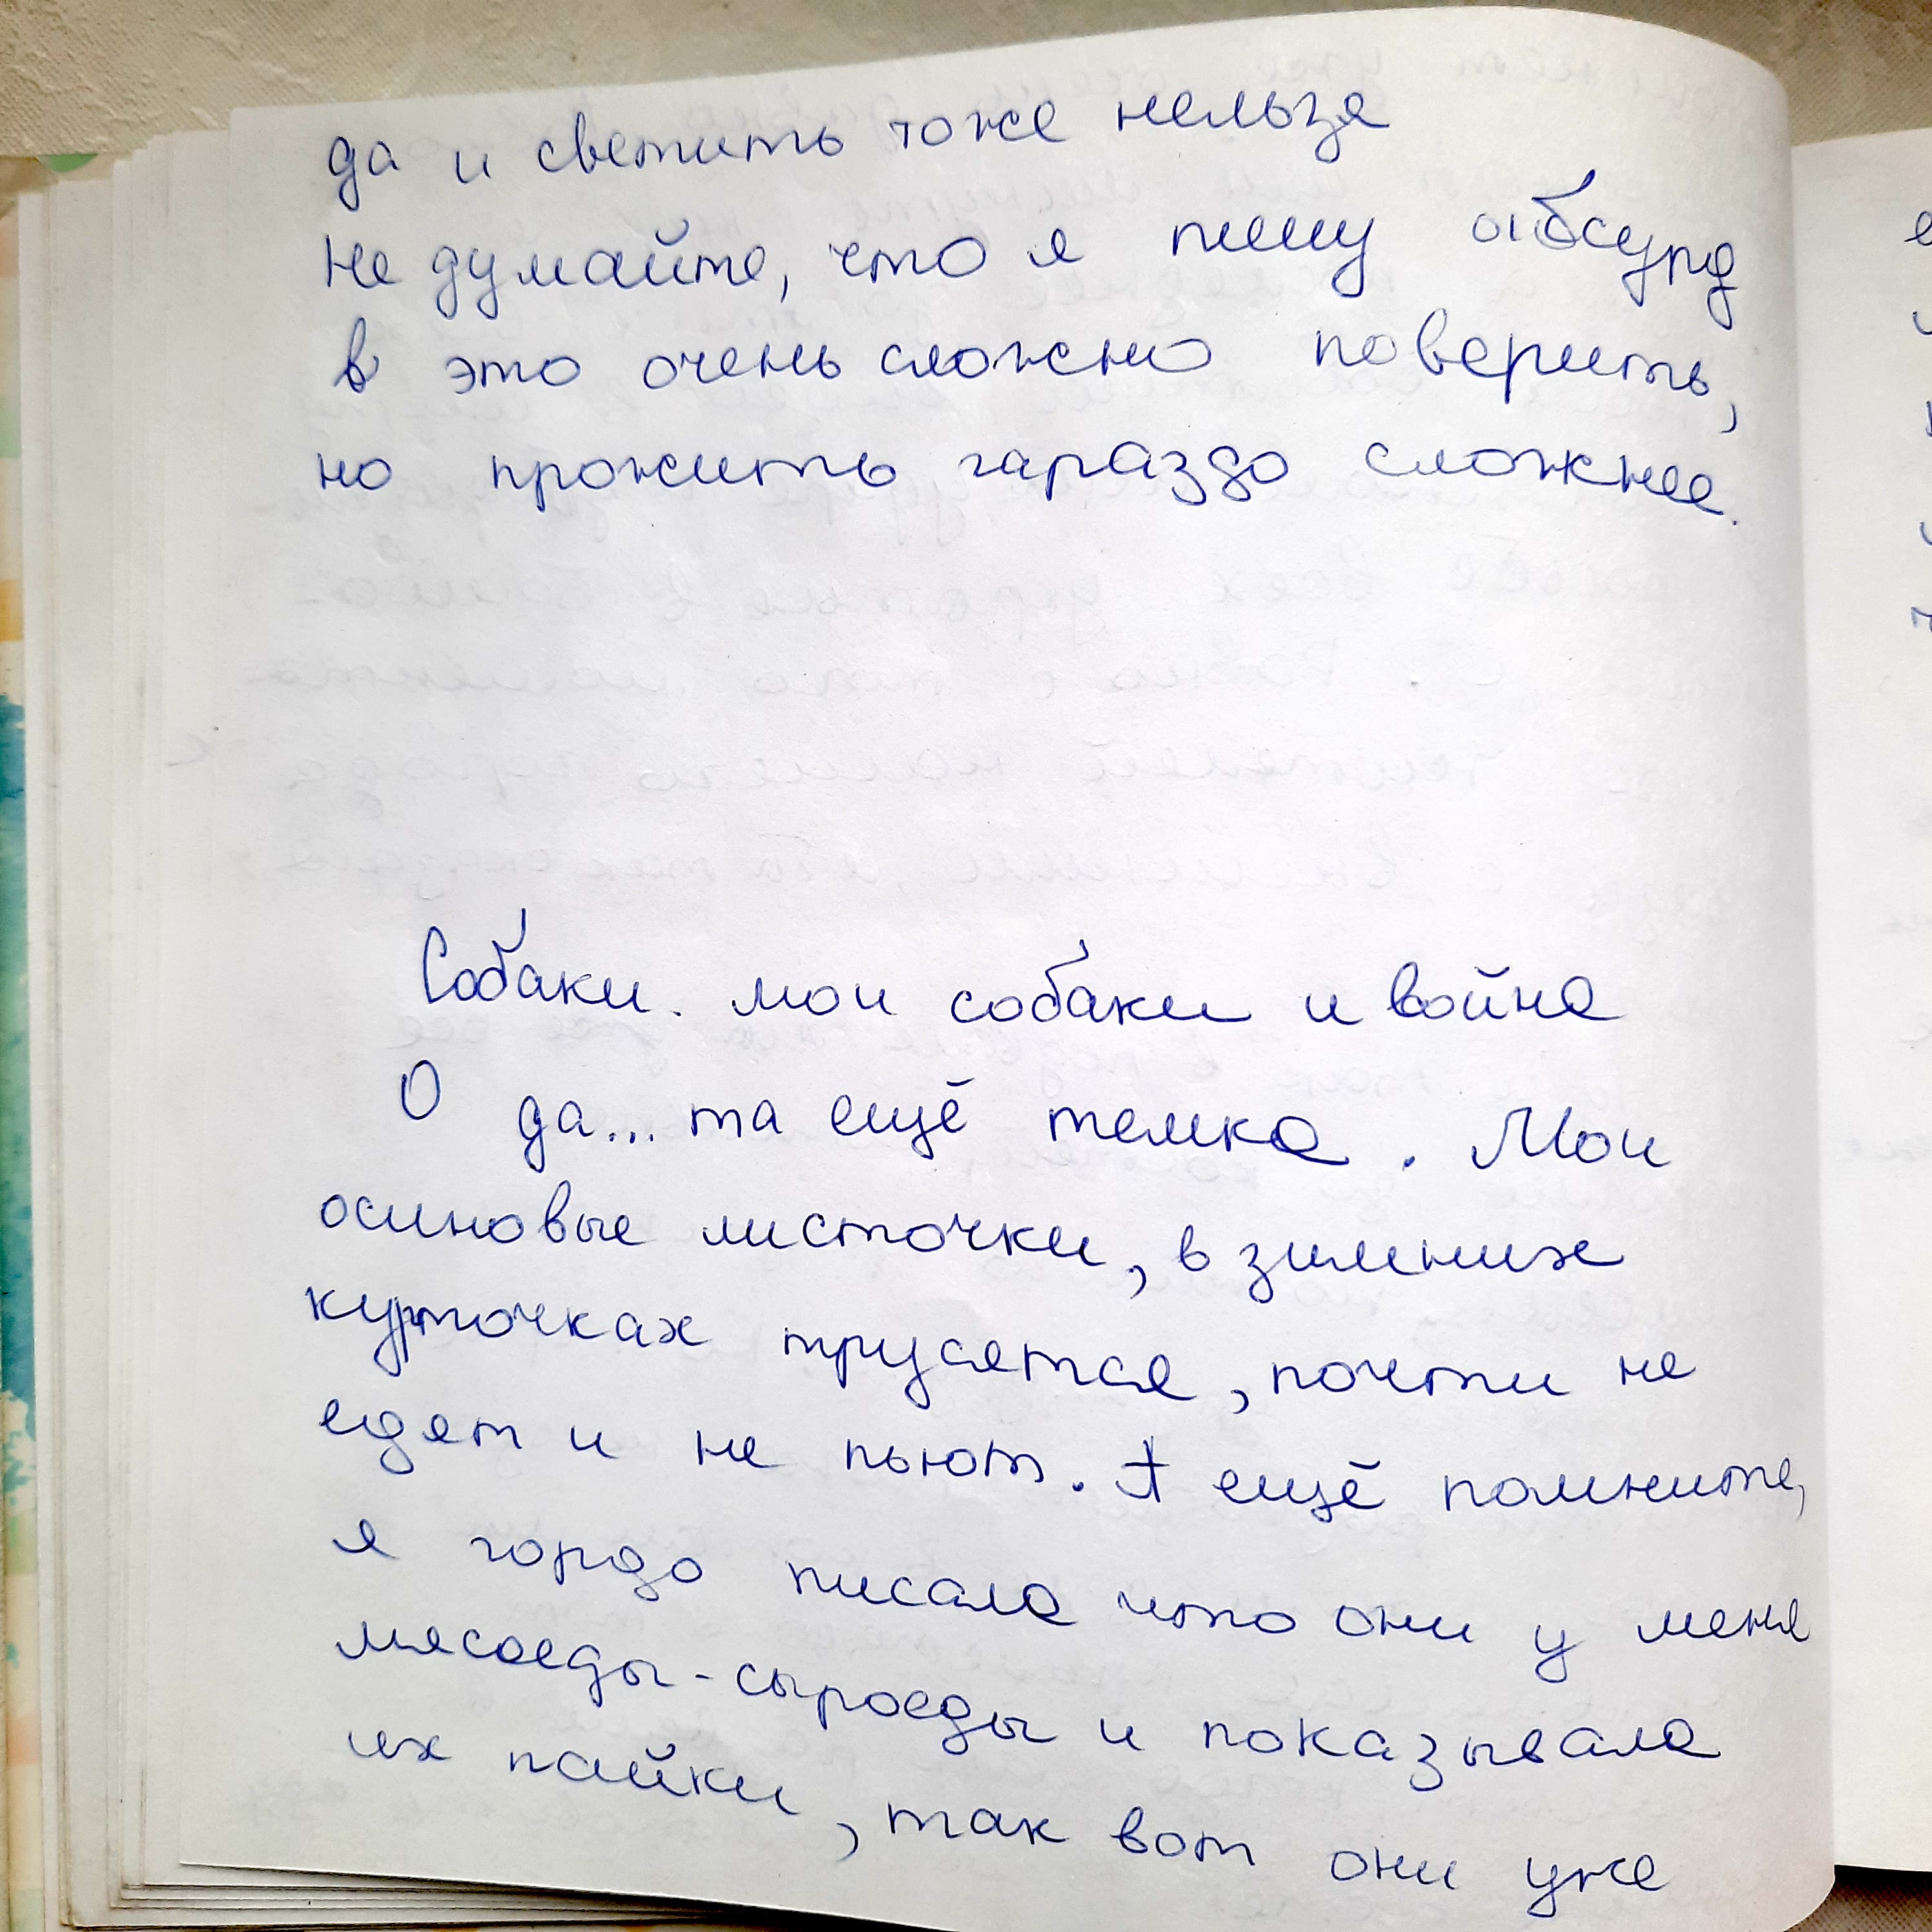 да и светить тоже нельзя
Не думайте, что я пишу абсурд
в это очень сложно поверить,
но прожить гараздо сложнее.
Собаки. мои собаки и война
О да... та ещё темка. Мои
осиновые листочки, в зимних
курточках трусятся, почти не
едят и не пьют. А ещё помните,
я гордо писала что они у меня
мясоеды-сыроеды и показывала
их пайки, так вот они уже